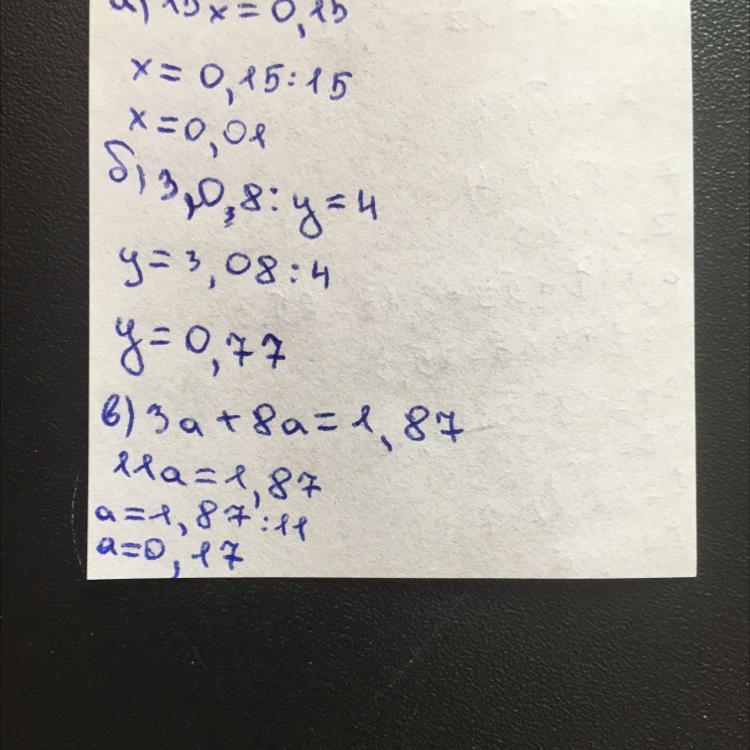 а) 15x = 0,15
x = 0,15:15
x = 0,01
б) 3,0,8:y = 4
y = 3,08:4
y = 0,77
в) 3a + 8a = 1,87
11a = 1,87
a = 1,87:11
a = 0,17